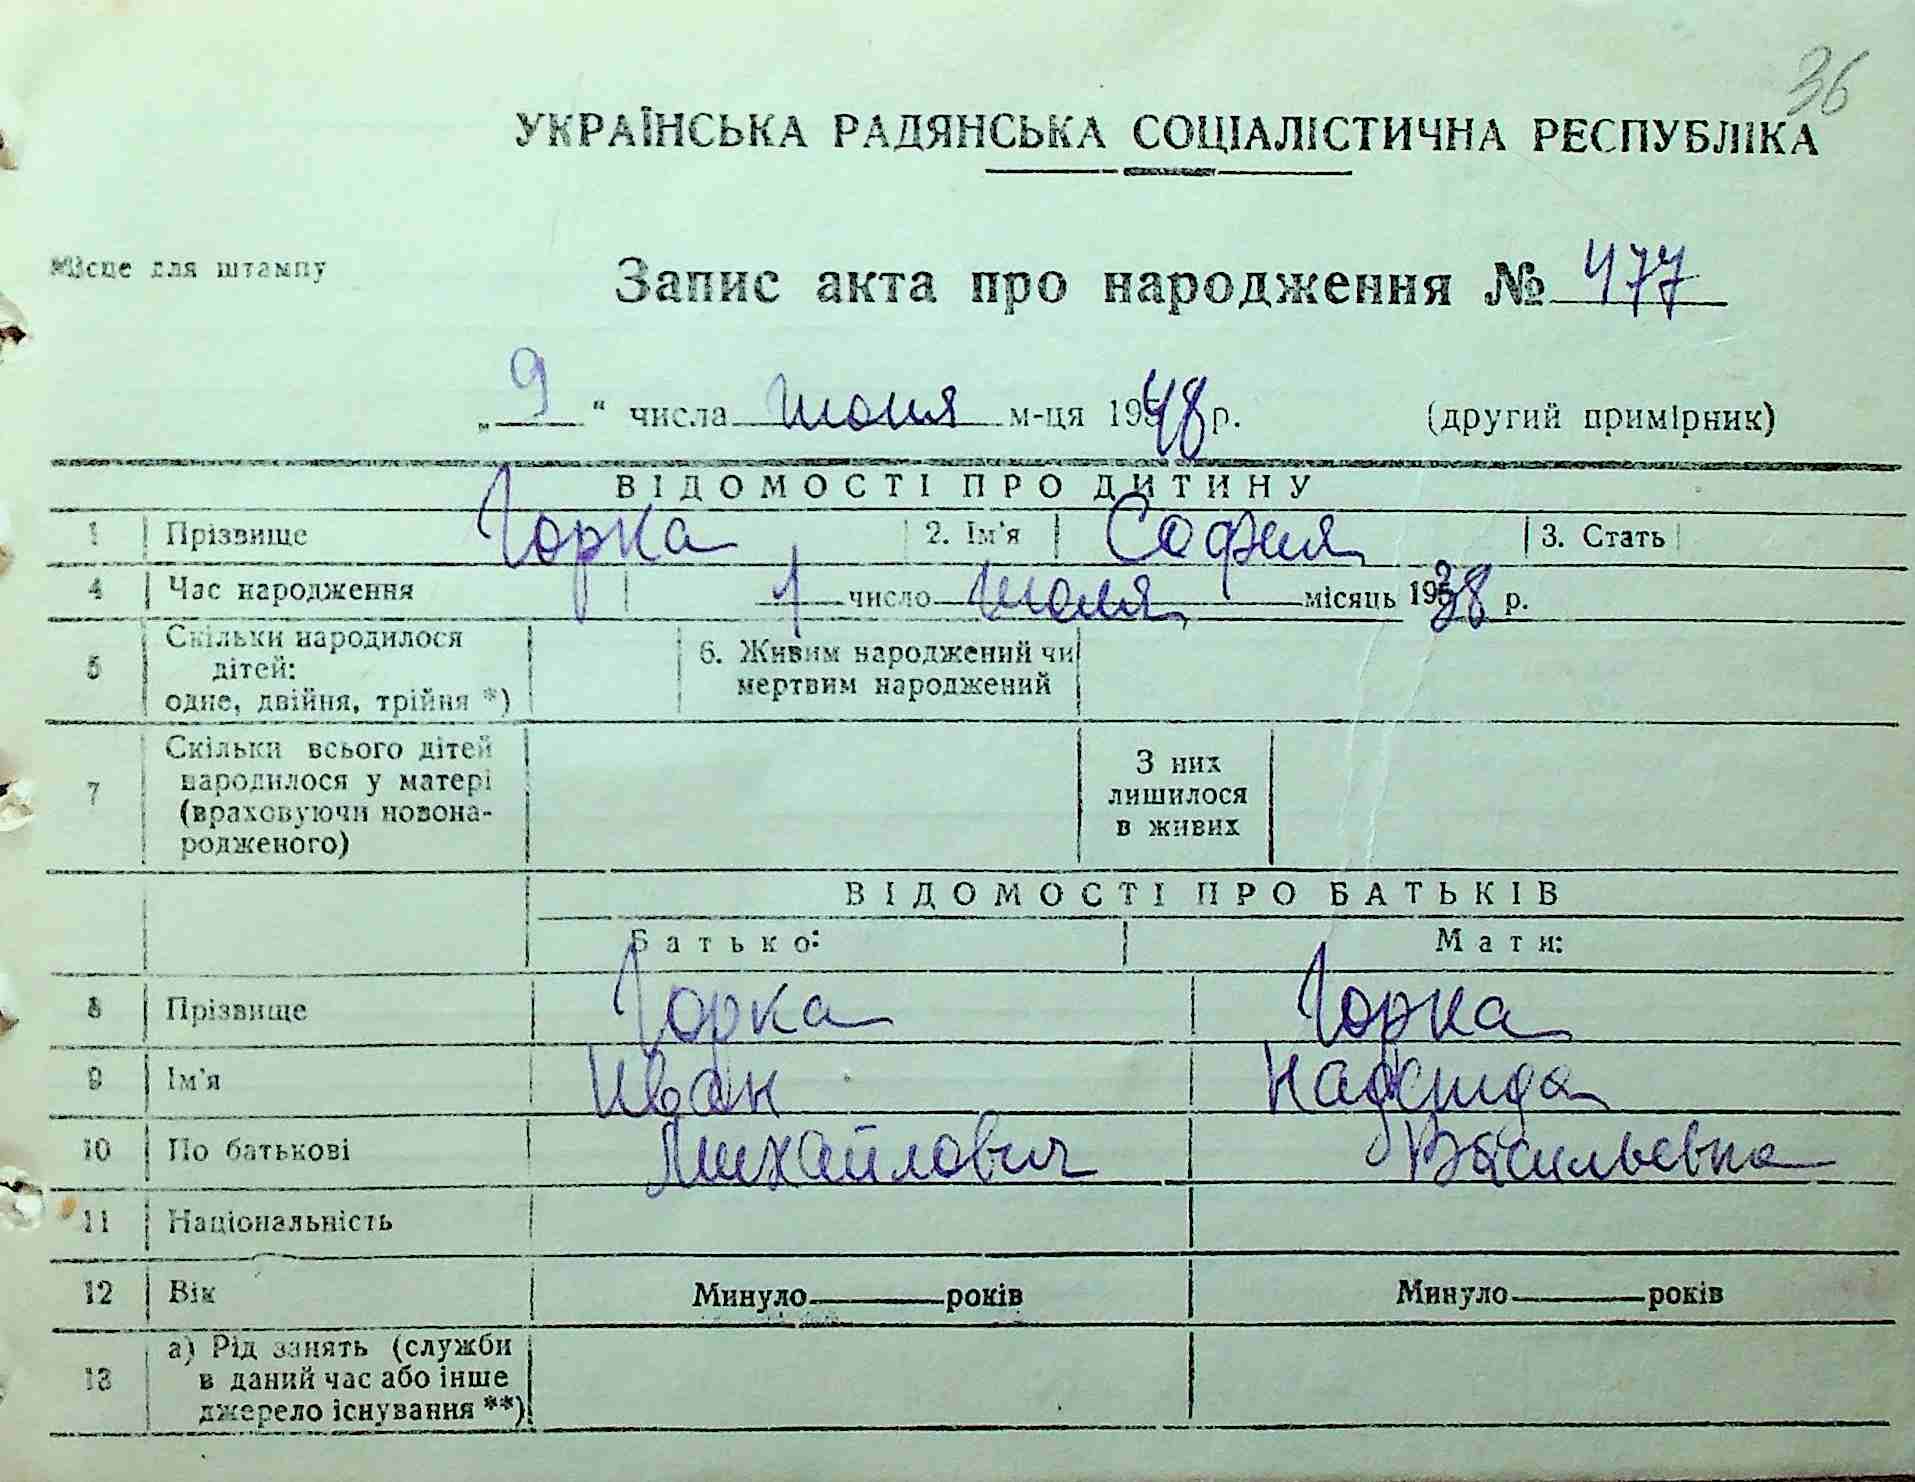 36
УКРАЇНСЬКА РАДЯНСЬКА СОЦІАЛІСТИЧНА РЕСПУБЛІКА
Місце для штампу
Запис акта про народження № 477
„ 9 “ числа июня м-ця 1948 р. (другий примірник)
ВІДОМОСТІ ПРО ДИТИНУ
1 Прізвище Горка 2. Ім'я София 3. Стать
4 Час народження 1 число июля місяць 1938 р.
5 Скільки народилося дітей: одне, двійня, трійня *) 6. Живим народжений чи мертвим народжений
7 Скільки всього дітей народилося у матері (враховуючи новонародженого) З них лишилося в живих
ВІДОМОСТІ ПРО БАТЬКІВ
Батько: Мати:
8 Прізвище Горка Горка
9 Ім'я Иван Надежда
10 По батькові Михайлович Васильевна
11 Національність
12 Вік Минуло років Минуло років
13 а) Рід занять (служби в даний час або інше джерело існування **)